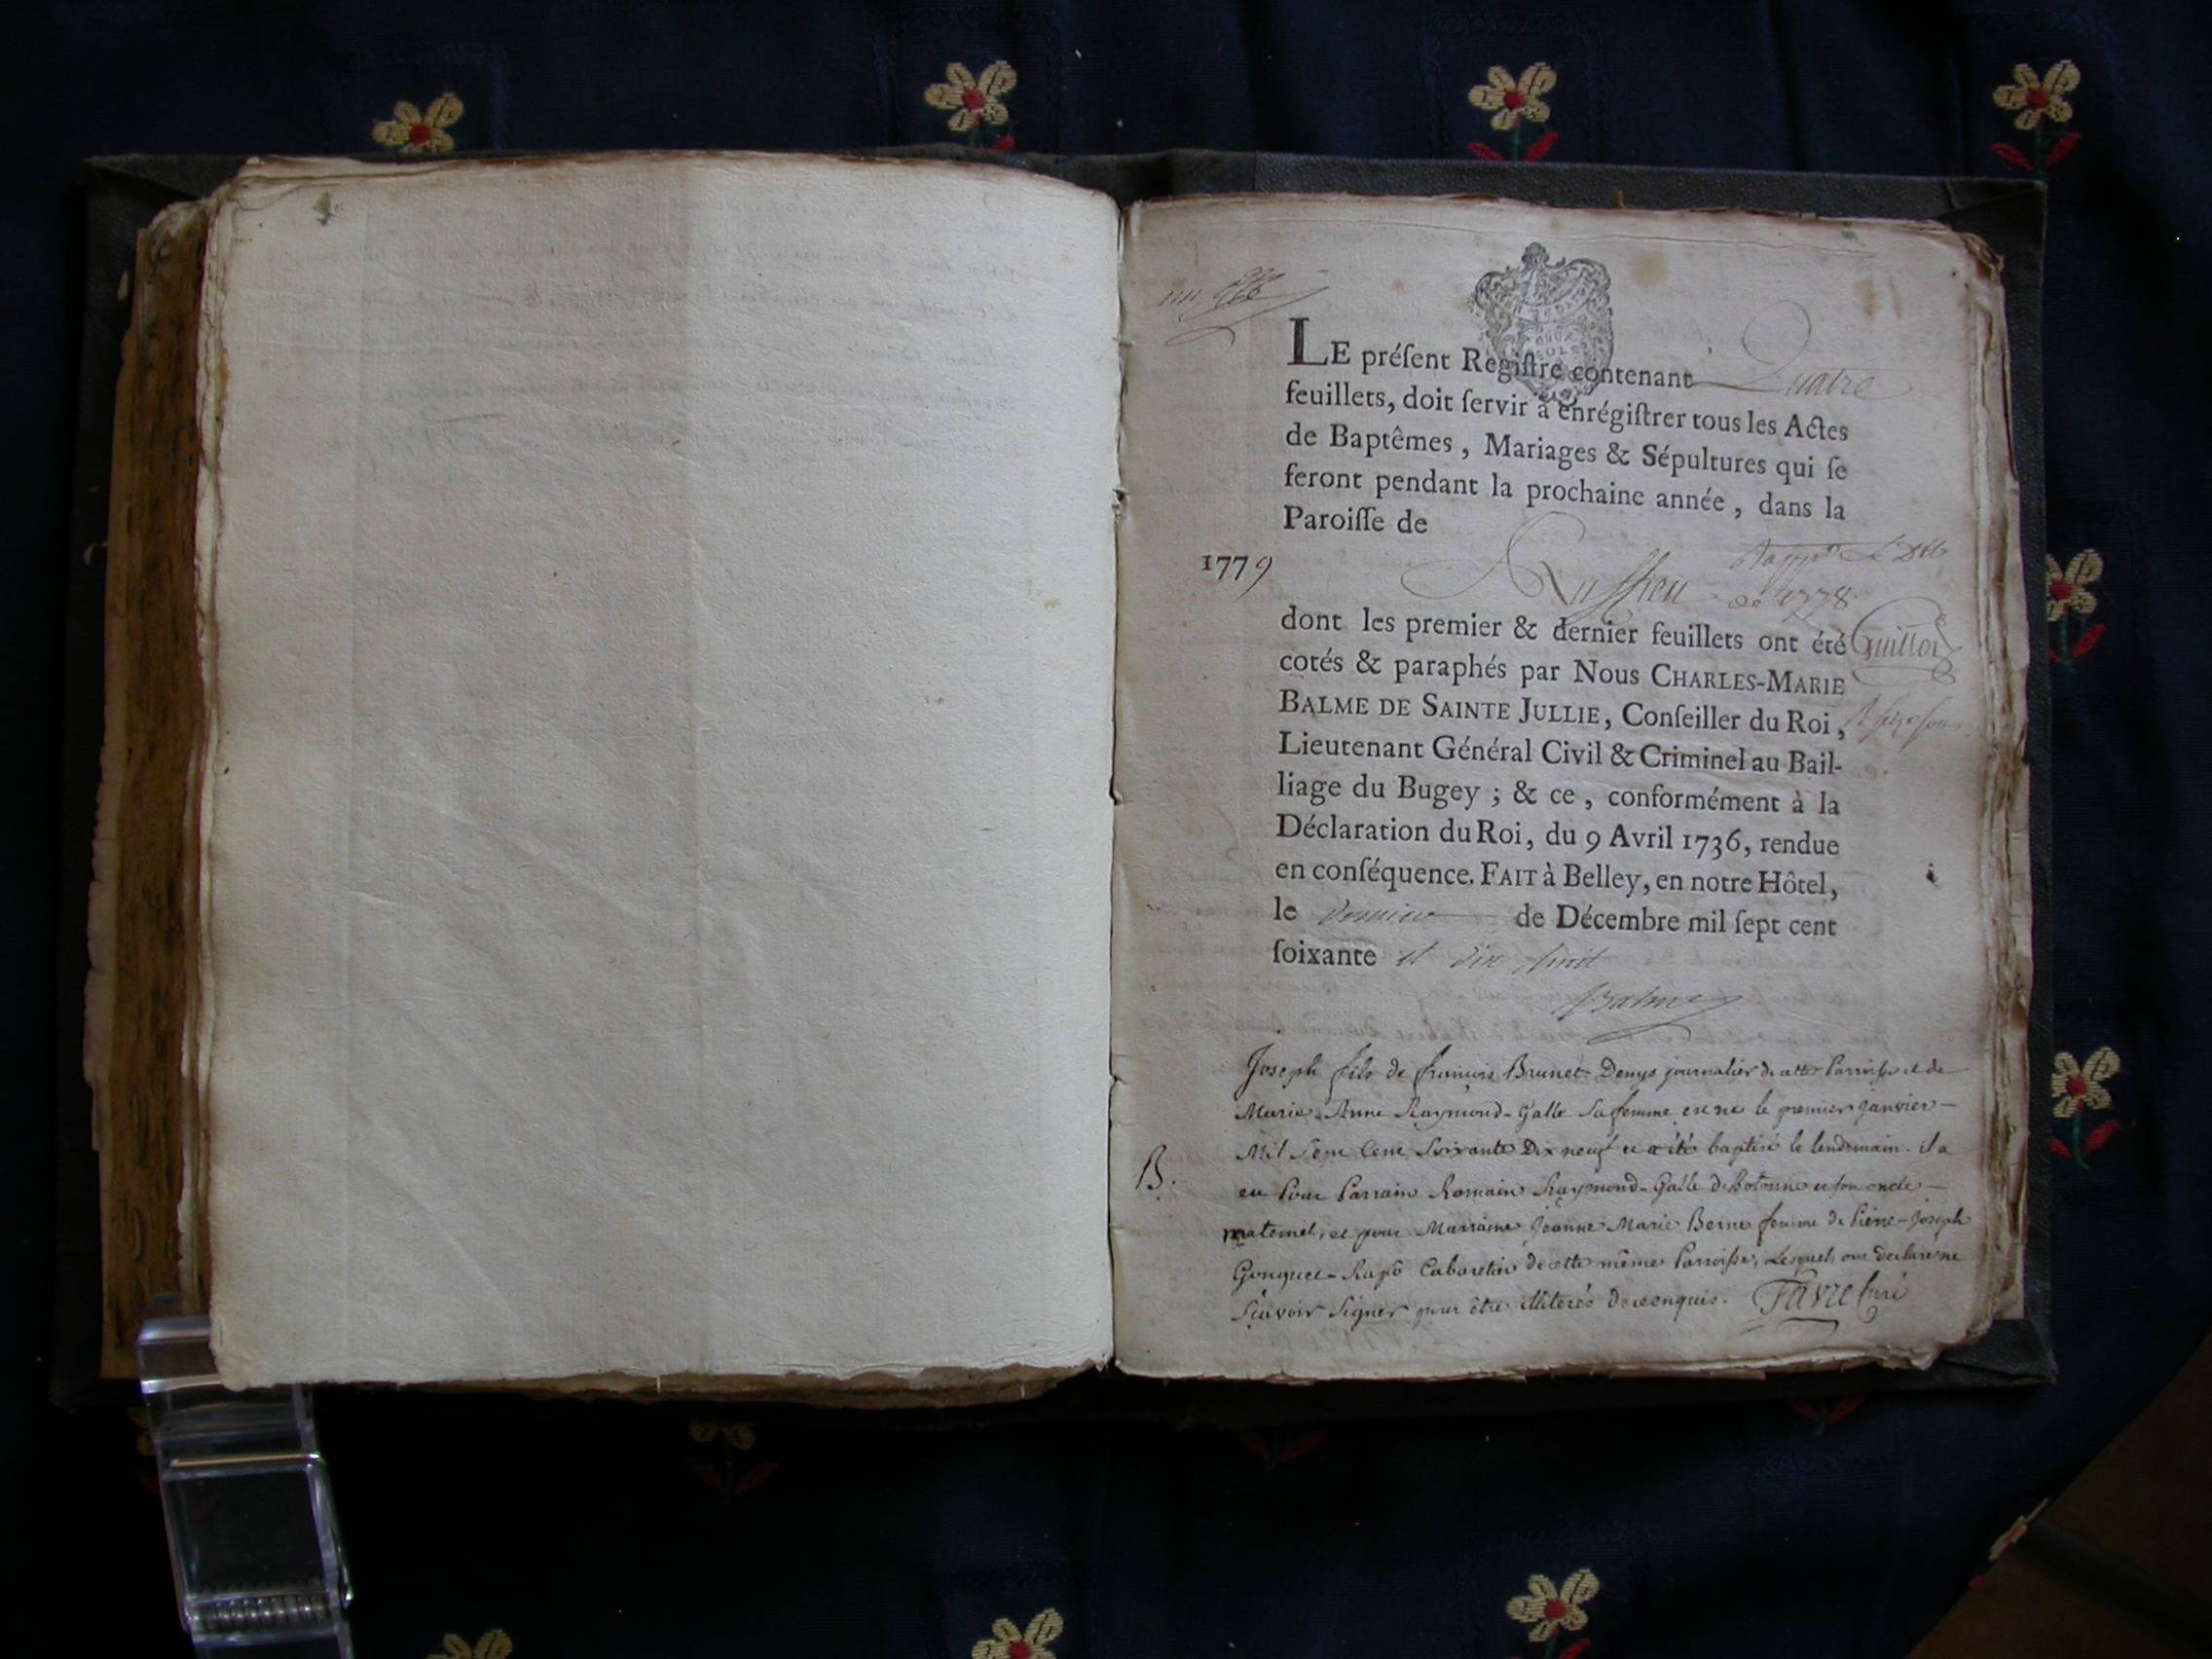 LE préſent Regiſtre contenant Quatre
feuillets, doit ſervir à enrégiſtrer tous les Actes
de Baptêmes, Mariages & Sépultures qui ſe
feront pendant la prochaine année, dans la
Paroiſſe de
1779
Ruffieu de 1778
dont les premier & dernier feuillets ont été
cotés & paraphés par Nous CHARLES-MARIE
BALME DE SAINTE JULLIE, Conſeiller du Roi,
Lieutenant Général Civil & Criminel au Bail-
liage du Bugey ; & ce, conformément à la
Déclaration du Roi, du 9 Avril 1736, rendue
en conſéquence. FAIT à Belley, en notre Hôtel,
le dernier de Décembre mil ſept cent
ſoixante et dix huit
Balme
Joseph fils de françois Brunet-Denys journalier de cette Parroisse et de
Marie-Anne Raymond-Galle sa femme est né le premier janvier
Mil Sept Cent Soixante Dix neuf et a été baptisé le lendemain. il a
B.
eu Pour Parrain Romain Raymond-Galle d'hotonne et son oncle
maternel, et pour Marraine Jeanne Marie Berne femme de Pierre-Joseph
Cabaretier de cette même Parroisse, Lesquels ont declaré ne
Sçavoir Signer pour être illiterés de ce enquis. Favre Curé